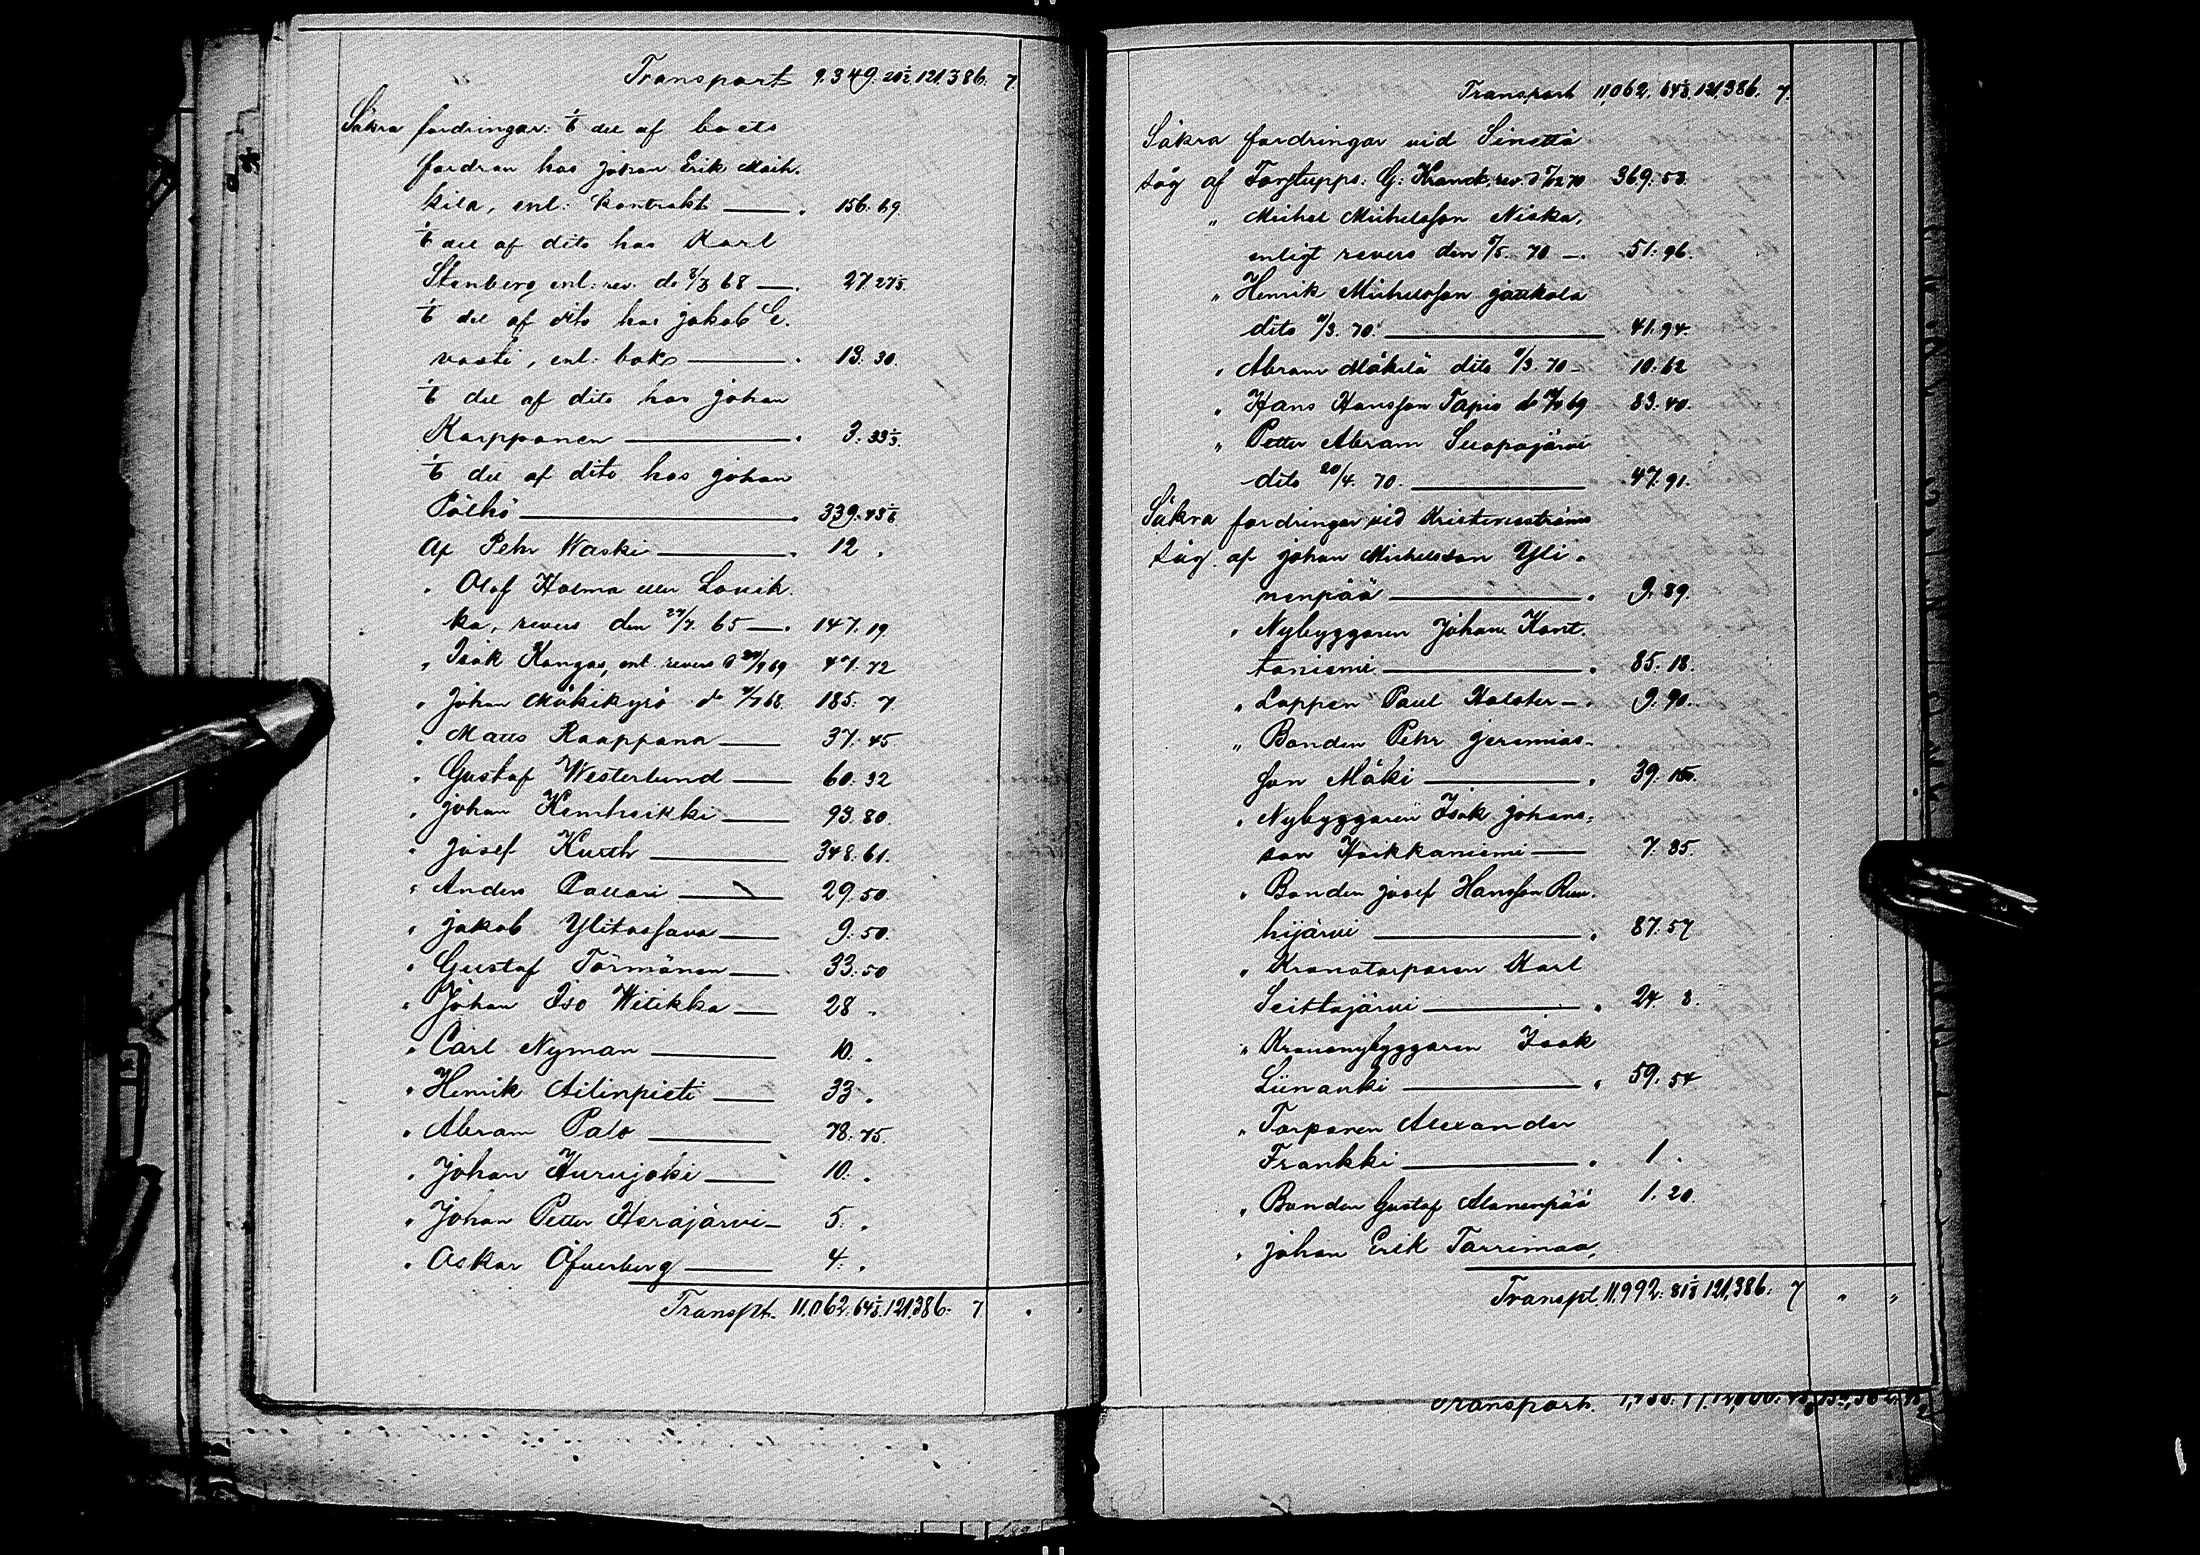 Transport 9.349. 20½. 121,386. 7
Säkra fordringar: ⅙ del af boets
fordran hos Johan Erik Maih-
kila, enl: kontrakt 156. 69
⅙ del af dito hos Karl
Stenberg enl: rev. do 8/3 68 27. 27⅓.
⅙ del af dito hos Jakob E.
vasti, enl: bok 13. 30.
⅙ del af dito hos Johan
Karpponen 3. 33⅓.
⅙ del af dito hos Johan
Pölhö 339. 43⅙
Af Pehr Waski 12 .
" Olof Holma eller Lovik-
ka, revers den 27/7. 65 147. 19
" Isak Kangas, enl revers d 20/9 69 47. 72
" Johan Mäkikyrö do 7/7 68. 185. 7
" Matts Raappana 37. 45
" Gustaf Westerlund 60. 32
" Johan Kemhsikki 93. 80.
" Josef Kurth 348. 61.
" Anders Pallari 29. 50.
" Jakob Ylitassava 9. 50.
" Gustaf Törmänen 33. 50
" Johan Iso Witikka 28 .
" Carl Nyman 10. .
" Henrik Ailinpieti 33 .
" Abram Palo 78. 75.
" Johan Hurujoki 10. .
" Johan Petter Herajärvi 5. .
" Oskar Öfverberg 4. .
Transpt. 11,062. 64⅓. 121,386. 7
Transport 11,062. 64⅓. 121,386. 7.
Säkra fordringar vid Sinettä
såg af Forstupps: G: Kranck, rev. d 7/12 70 369. 53.
" Michel Michelsson Niska,
enligt revers den 5/5. 70 51. 96.
" Henrik Michelsson Jaukola
dito 9/3. 70. 41. 94.
" Abram Mäkelä dito 9/3. 70 10. 62
" Hans Hansson Tapio do 69 83. 40.
" Petter Abram Suopajärvi
dito 20/4. 70. 47. 91.
Säkra fordringar vid Kristineströms
såg. af Johan Michelsson Yli-
nenpää 9. 89.
" Nybyggaren Johan Kont-
taniemi 85. 18.
" Lappen Paul Halster 9. 90.
" Bonden Pehr Jeremias-
son Mäki 39. 15.
" Nybyggaren Isak Johans-
son Hoikkaniemi 7. 85.
" Bonden Josef Hansson Rau-
hijärvi 87. 57
" Kronotorparen Karl
Seittajärvi 24. 8.
" Krononybyggaren Isak
Liinanki 59. 54
" Torparen Alexander
Frankki 1 .
" Bonden Gustaf Alanenpää 1. 20.
" Johan Erik Tarrimaa,
Transpt. 11,992. 81⅓ 121,386. 7 " "
Transport.